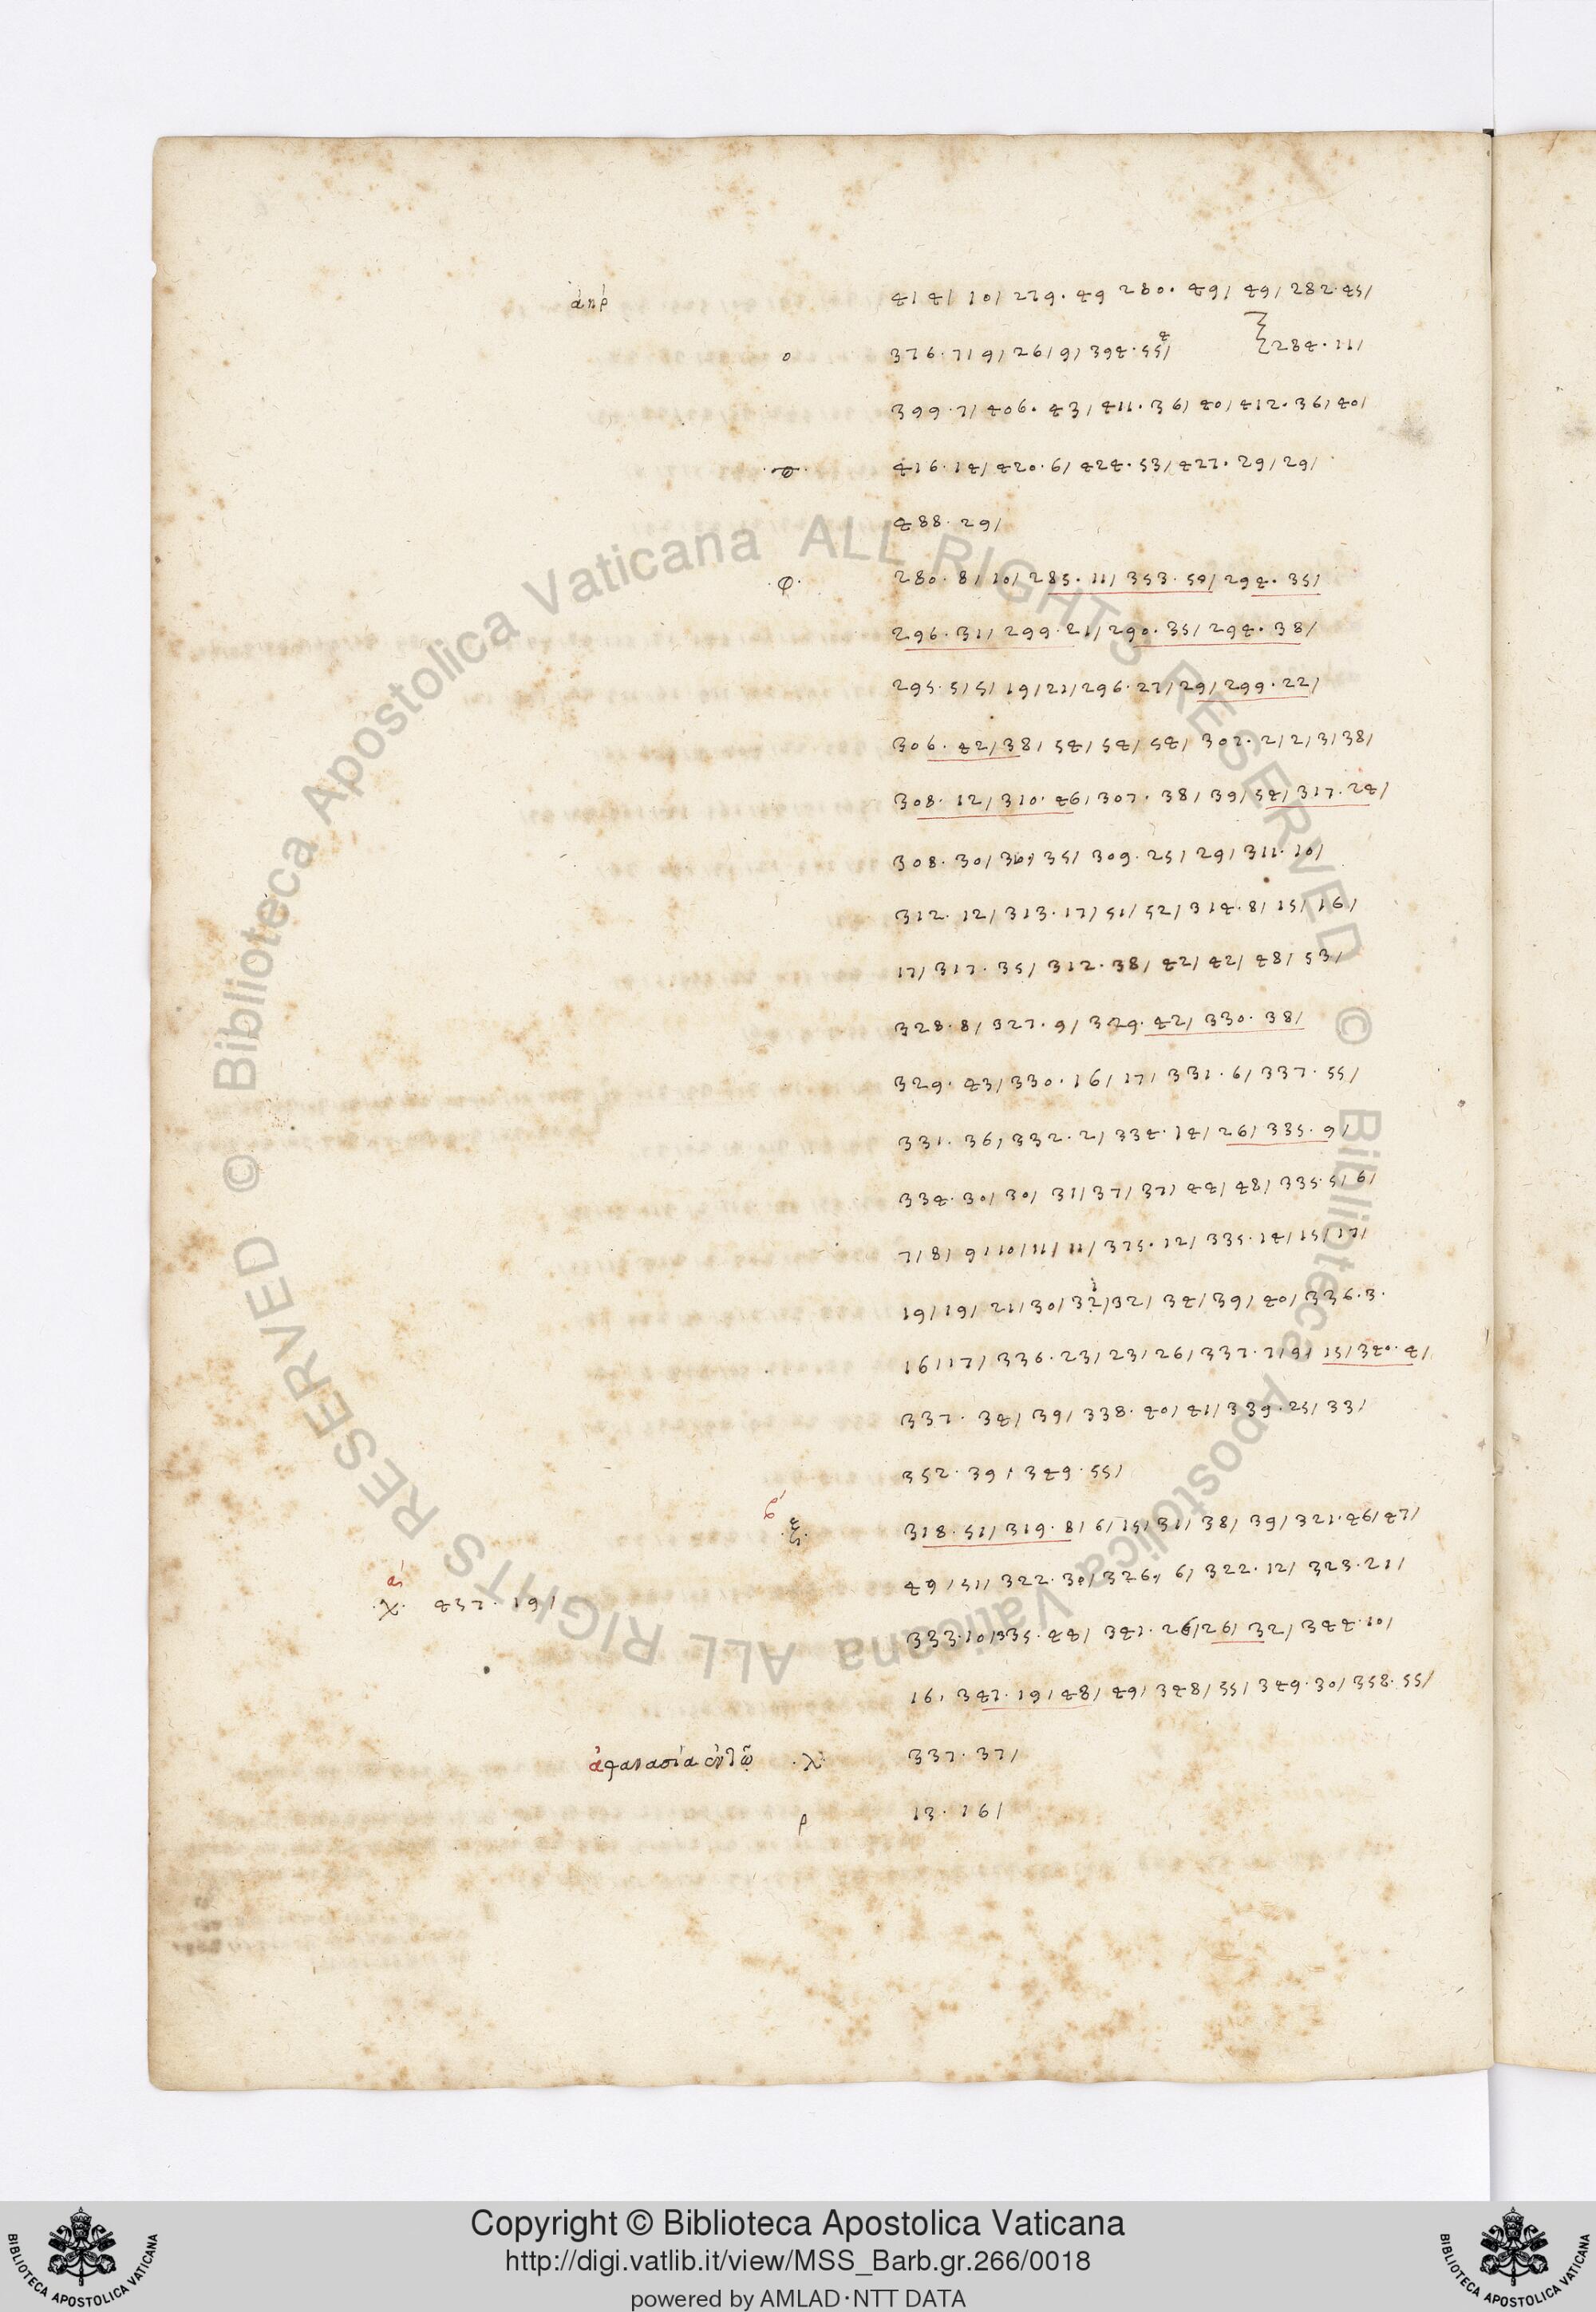 ἀήρ 4/ 4/ 10/ 279. 49 280. 49/ 49/ 282. 45/
ο 376. 7/ 9/ 26/ 9/ 394. 55/ 284. 11/
399. 7/ 406. 43/ 411. 36/ 40/ 412. 36/ 40/
416. 14/ 420. 6/ 424. 53/ 427. 29/ 29/
488. 29/
.φ. 280. 8/ 10/ 285. 11/ 353. 50/ 294. 35/
296. 31/ 299. 21/ 290. 35/ 294. 38/
295. 5/ 5/ 19/ 21/ 296. 27/ 29/ 299. 22/
306. 42/ 38/ 54/ 54/ 54/ 307. 2/ 2/ 3/ 38/
308. 12/ 310. 46/ 307. 38/ 39/ 54/ 317. 24/
308. 30/ 30/ 35/ 309. 25/ 29/ 311. 10/
312. 12/ 313. 17/ 51/ 52/ 314. 8/ 15/ 16/
17/ 317. 35/ 312. 38/ 42/ 42/ 48/ 53/
328. 8/ 327. 9/ 329. 42/ 330. 38/
329. 43/ 330. 16/ 17/ 331. 6/ 337. 55/
331. 36/ 332. 2/ 334. 14/ 26/ 335. 9/
334. 30/ 30/ 31/ 37/ 37/ 44/ 48/ 335. 5/ 6/
7/ 8/ 9/ 10/ 11/ 11/ 375. 12/ 335. 14/ 15/ 17/
19/ 19/ 21/ 30/ 32/ 32/ 34/ 39/ 40/ 336. 3.
16/ 17/ 336. 23/ 23/ 26/ 337. 7/ 9/ 15/ 340. 4/
337. 34/ 39/ 338. 40/ 41/ 339. 25/ 33/
352. 39/ 349. 55/
.ξ. 318. 51/ 319. 8/ 6/ 15/ 31/ 38/ 39/ 321. 46/ 47/
49/ 51/ 322. 30/ 326. 6/ 322. 12/ 323. 21/
.χ. 437. 19/
333. 10/ 335. 44/ 341. 26/ 26/ 32/ 344. 10/
16/ 347. 19/ 48/ 49/ 348/ 55/ 349. 30/ 358. 55/
.λ. 337. 37/
ρ 13. 16/
© Biblioteca Apostolica Vaticana ALL RIGHTS RESERVED © Biblioteca Apostolica Vaticana ALL RIGHTS RESERVED
Copyright © Biblioteca Apostolica Vaticana
http://digi.vatlib.it/view/MSS_Barb.gr.266/0018
powered by AMLAD·NTT DATA
BIBLIOTECA APOSTOLICA VATICANA
BIBLIOTECA APOSTOLICA VATICANA